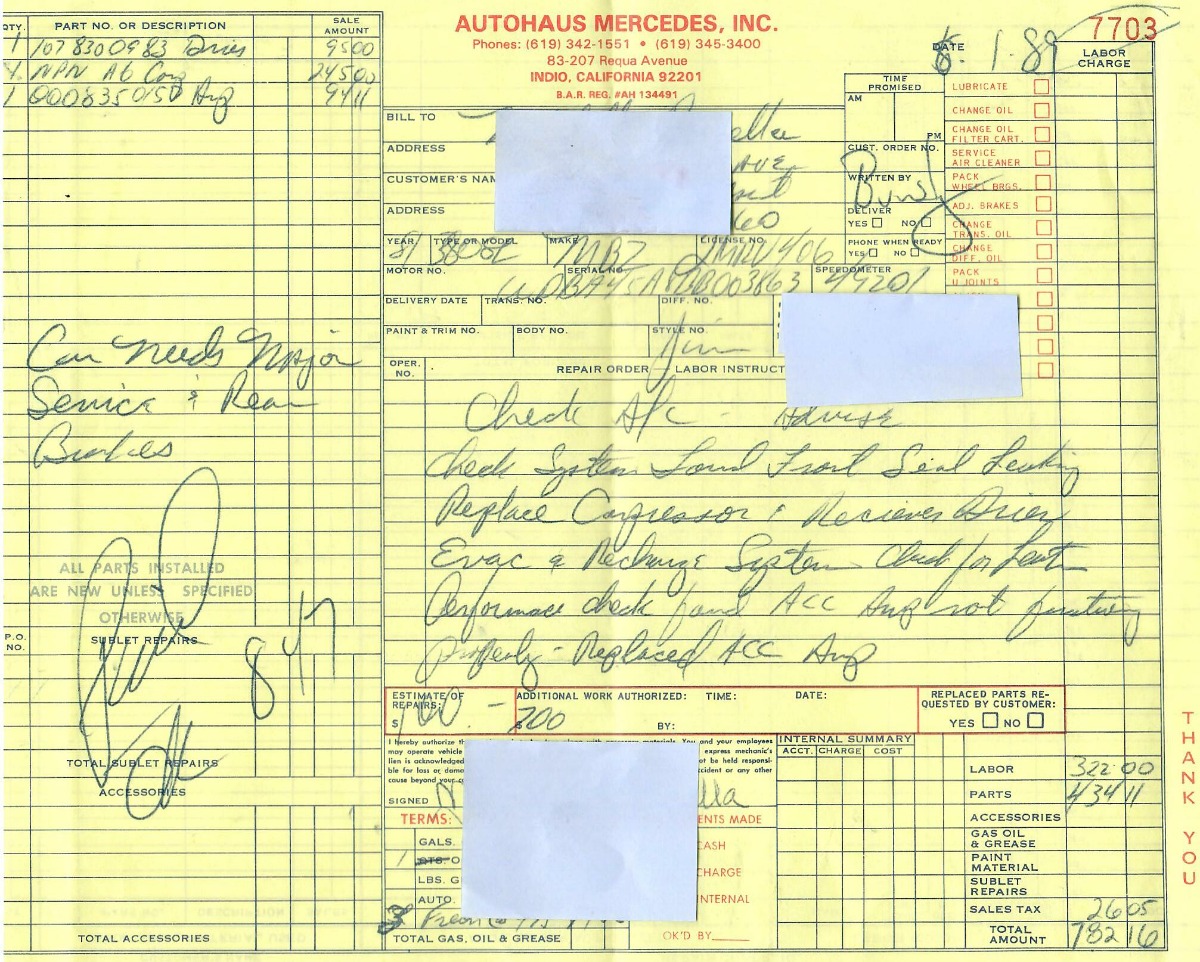 AUTOHAUS MERCEDES, INC.
Phones: (619) 342-1551 • (619) 345-3400
83-207 Requa Avenue
INDIO, CALIFORNIA 92201
B.A.R. REG. #AH 134491
7703
DATE 1.89
LABOR CHARGE
QTY. PART NO. OR DESCRIPTION SALE AMOUNT
1 107 830 0983 Drier 95 00
NPN A6 Com 245 00
1 000 835 0150 Amp 94 11
BILL TO
ADDRESS AVE
CUSTOMER'S NAM
ADDRESS 60
TIME PROMISED
AM
PM
CUST. ORDER NO.
WRITTEN BY
DELIVER
YES NO
PHONE WHEN READY
YES NO
LUBRICATE
CHANGE OIL
CHANGE OIL FILTER CART.
SERVICE AIR CLEANER
PACK WHEEL BRGS.
ADJ. BRAKES
CHANGE TRANS. OIL
CHANGE DIFF. OIL
PACK U-JOINTS
YEAR 81 TYPE OR MODEL 380SL MAKE MBZ LICENSE NO.
MOTOR NO. SERIAL NO. WDBA45A8BB003863 SPEEDOMETER 49201
DELIVERY DATE TRANS. NO. DIFF. NO.
PAINT & TRIM NO. BODY NO. STYLE NO.
Jim
OPER. NO. REPAIR ORDER - LABOR INSTRUCT
Check A/C - Advise
Check System Found Front Seal Leaking
Replace Compressor & Reciever Drier
Evac & Recharge System Check for Leak
Performace check found ACC Amp not funtioning
properly - Replaced ACC Amp
Car Needs Major
Service & Rear
Brakes
ALL PARTS INSTALLED
ARE NEW UNLESS SPECIFIED
OTHERWISE
P.O. NO. SUBLET REPAIRS
847
TOTAL SUBLET REPAIRS
ACCESSORIES
TOTAL ACCESSORIES
ESTIMATE OF REPAIRS: $
ADDITIONAL WORK AUTHORIZED: TIME: DATE:
$ 200 BY:
REPLACED PARTS REQUESTED BY CUSTOMER:
YES NO
I hereby authorize
may operate vehicle
lien is acknowledged
ble for loss or
cause beyond your
You and your employees
express mechanic's
not be held responsi-
accident or any other
SIGNED lla
TERMS:
ENTS MADE
CASH
CHARGE
INTERNAL
GALS.
1 QTS. O
LBS. G
AUTO.
3 Freon
TOTAL GAS, OIL & GREASE
OK'D BY
INTERNAL SUMMARY
ACCT. CHARGE COST
LABOR 322 00
PARTS 434 11
ACCESSORIES
GAS OIL & GREASE
PAINT MATERIAL
SUBLET REPAIRS
SALES TAX 26 05
TOTAL AMOUNT 782 16
THANK YOU